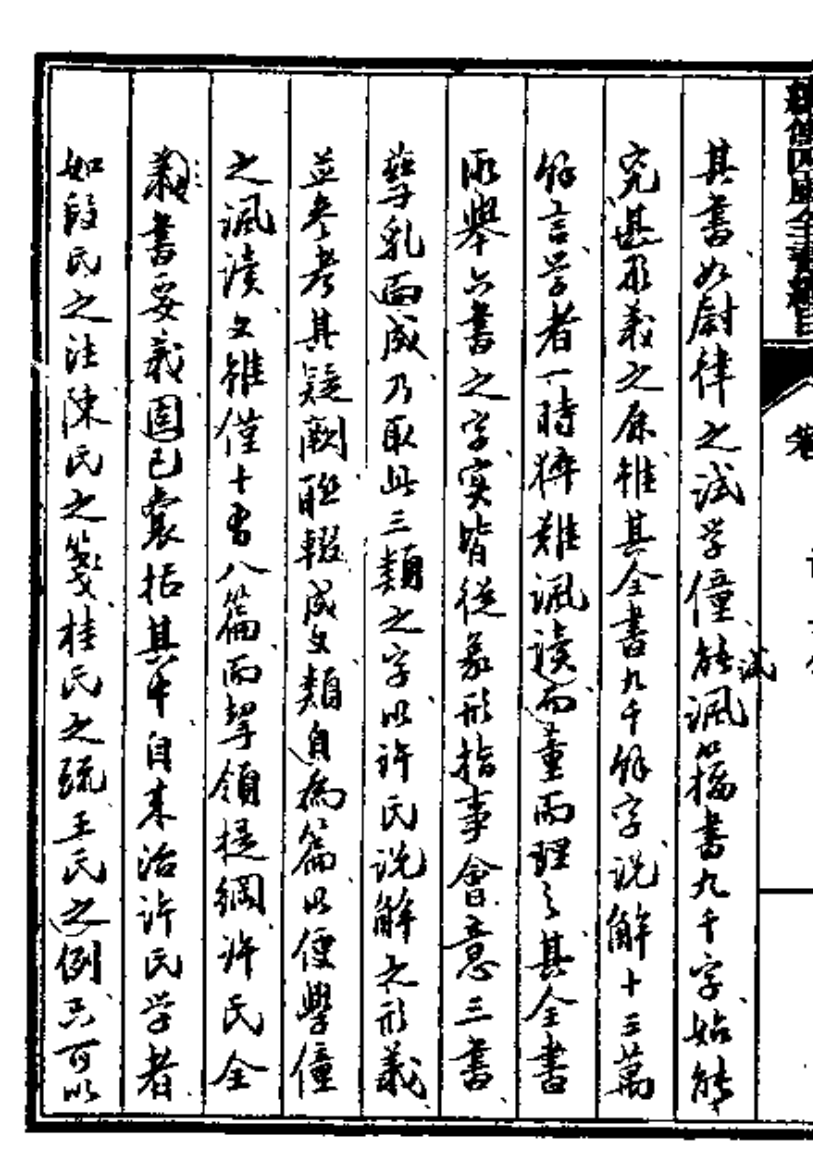 續修四庫全書總目
其書如尉律之試學僮能諷籀書九千字始能
試
究甚形義之原惟其全書九千餘字說解十三萬
餘言学者一時猝難諷讀而董而理之其全書
所舉六書之字實皆從象形指事會意三書
孳乳而成乃取此三類之字以許氏说解之形義
並參考其疑闕聯輟成文類自為篇以便學僮
之諷讀文雖僅十有八篇而挈領提綱許氏全
書要義固已囊括其中自來治許氏学者
如段氏之注陳氏之箋桂氏之疏王氏之例只可以